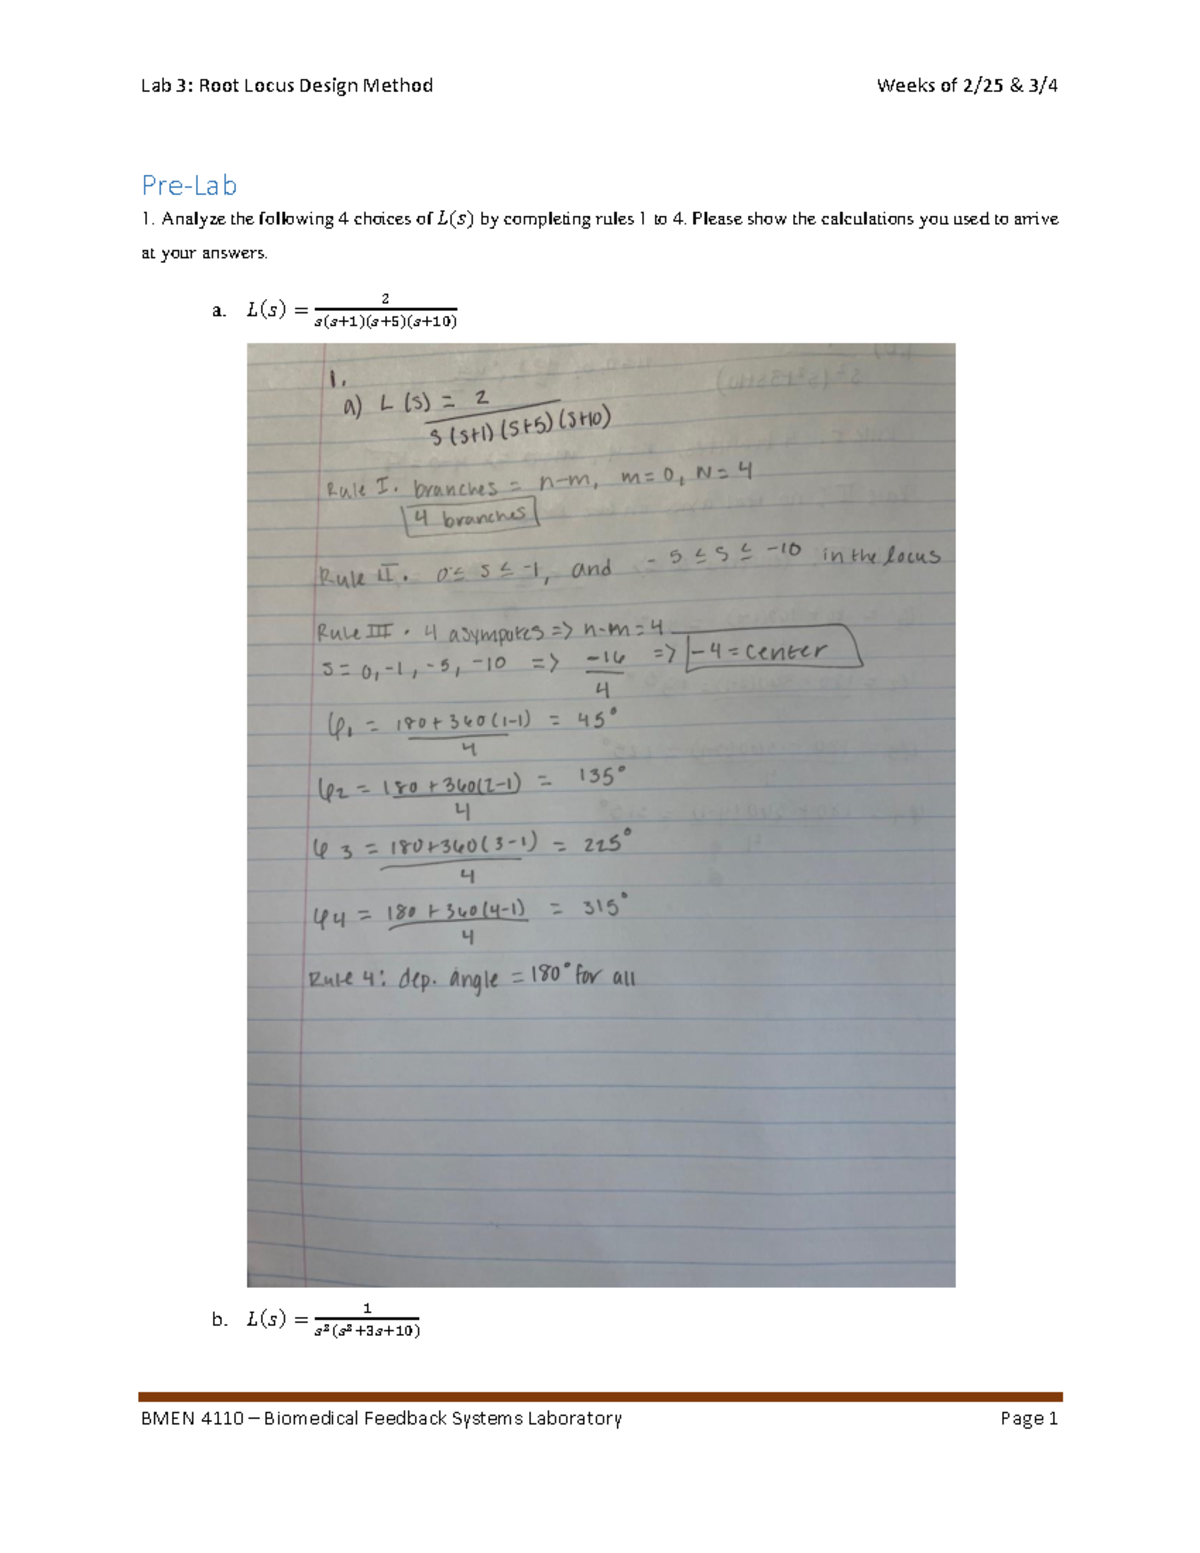 Lab 3: Root Locus Design Method Weeks of 2/25 & 3/4
Pre-Lab
1. Analyze the following 4 choices of L(s) by completing rules 1 to 4. Please show the calculations you used to arrive
at your answers.
a. L(s) = 2 / s(s+1)(s+5)(s+10)
1.
a) L (s) = 2
s (s+1) (s+5) (s+10)
Rule I. branches = n-m, m=0, N=4
4 branches
Rule II. 0 ≤ s ≤ -1, and -5 ≤ s ≤ -10 in the locus
Rule III. 4 asymptotes => n-m=4
s = 0, -1, -5, -10 => -16/4 => -4 = center
φ1 = 180+360(1-1)/4 = 45°
φ2 = 180+360(2-1)/4 = 135°
φ3 = 180+360(3-1)/4 = 225°
φ4 = 180+360(4-1)/4 = 315°
Rule 4: dep. angle = 180° for all
b. L(s) = 1 / s²(s²+3s+10)
BMEN 4110 – Biomedical Feedback Systems Laboratory Page 1